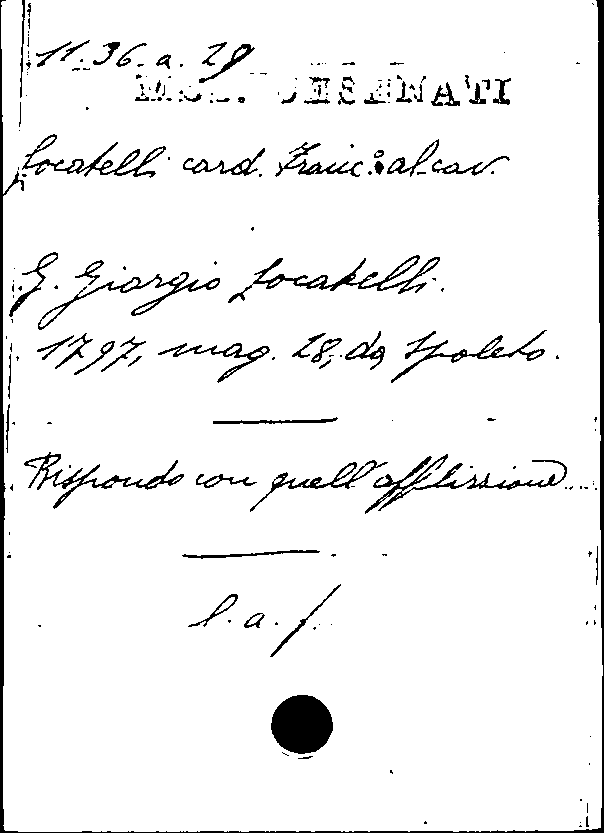 11. 36. a. 29
MSS. CESENATI
Locatelli card. Franc.º al cav.
G. Giorgio Locatelli.
1797, mag. 28, da Spoleto.
Rispondo con quell'afflizione...
l. a. f.